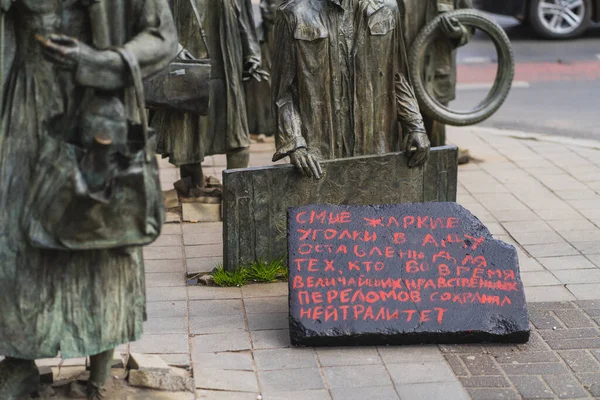 СМЫЕ ЖАРКИЕ
УГОЛКИ В АДУ
ОСТАВЛЕНЫ ДЛЯ
ТЕХ, КТО ВО ВРЕМЯ
ВЕЛИЧАЙШИХ НРАВСТВЕННЫХ
ПЕРЕЛОМОВ СОХРАНЯЛ
НЕЙТРАЛИТЕТ